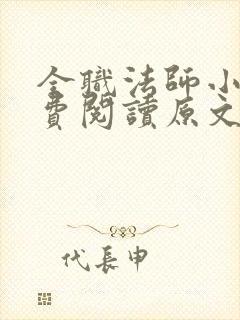 全職法師小
費閱讀原文
代長申